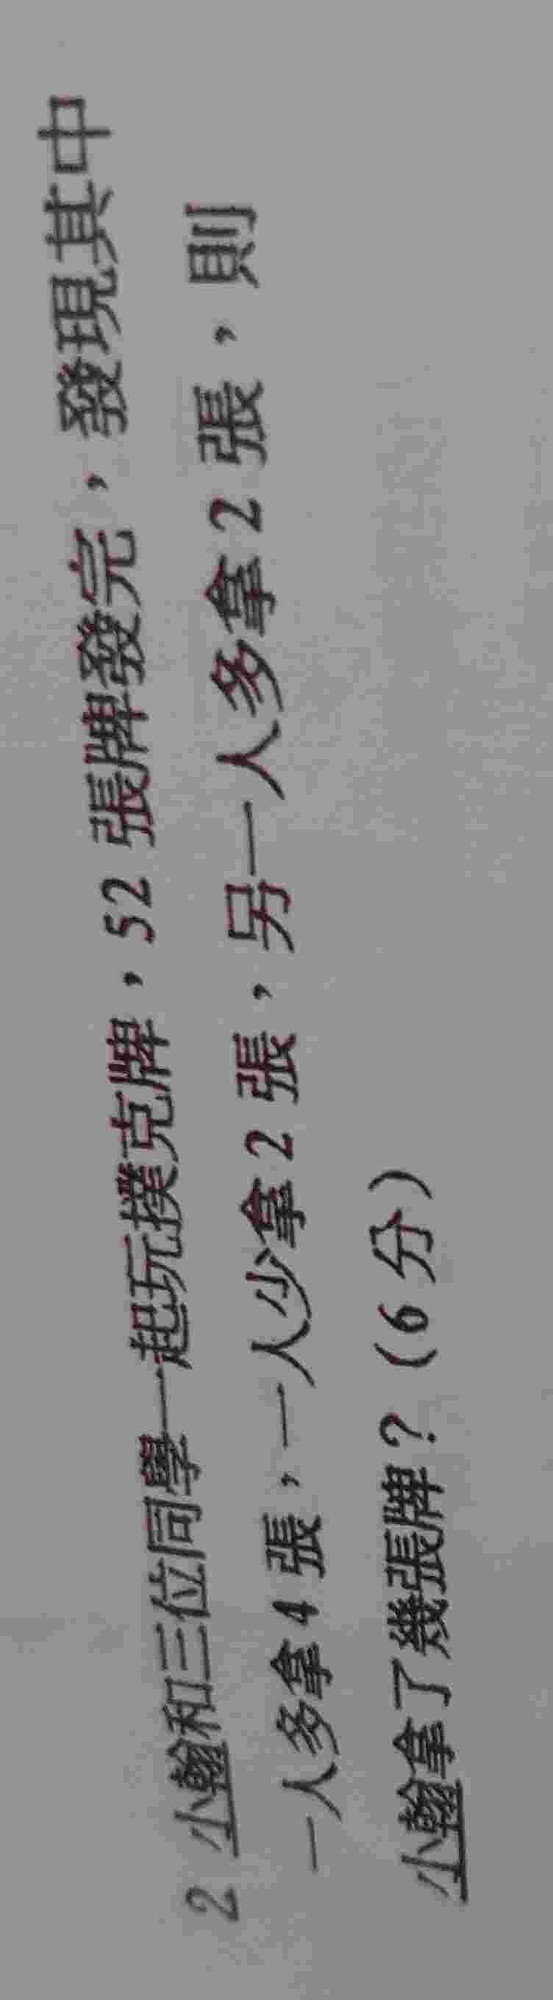 2 小翰和三位同學一起玩撲克牌，52 張牌發完，發現其中
一人多拿 4 張，一人少拿 2 張，另一人多拿 2 張，則
小翰拿了幾張牌？（6 分）